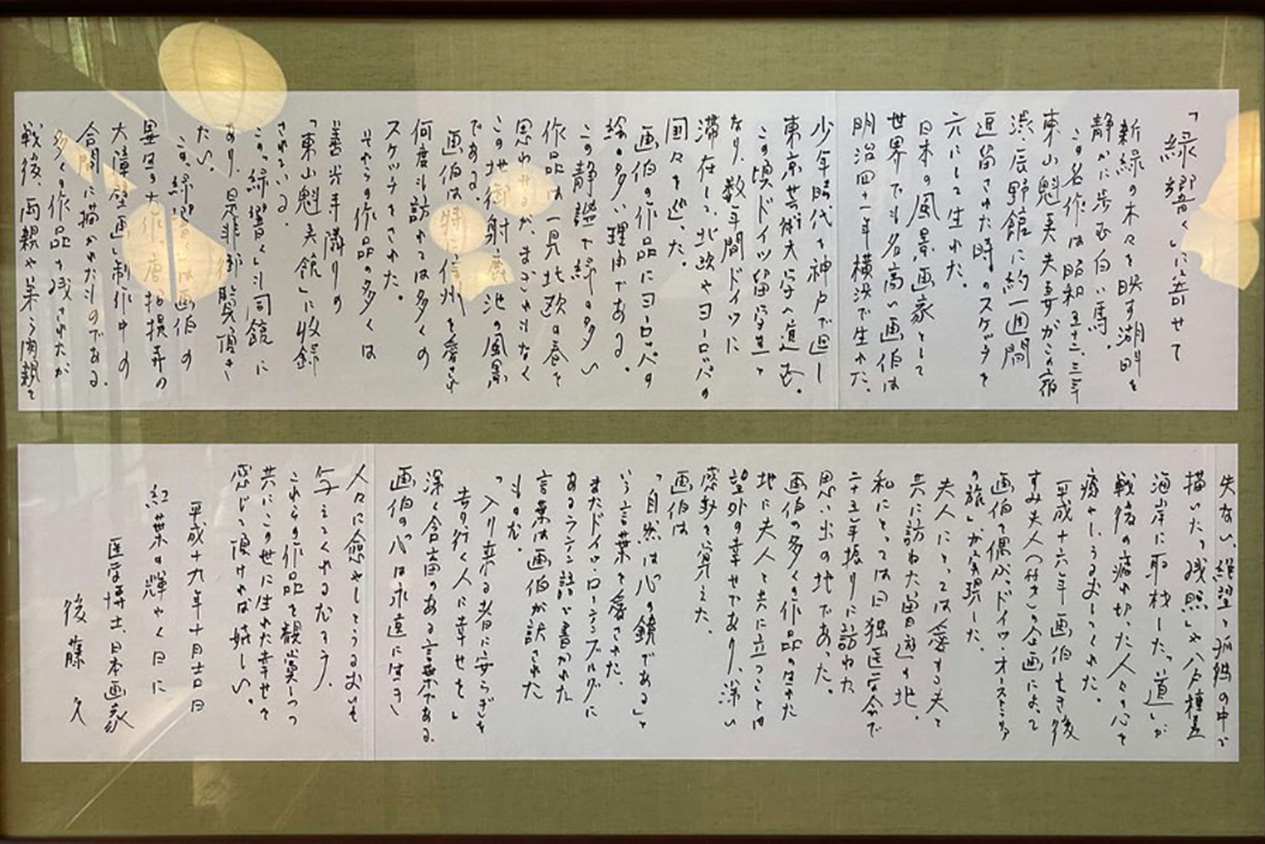 「緑響く」に寄せて
新緑の木々を映す湖畔を
静かに歩む白い馬。
この名作は昭和五十二、三年
東山魁夷夫妻がこの宿
渋・辰野館に約一週間
逗留された時のスケッチを
元にして生れた。
日本の風景画家として
世界でも名高い画伯は
明治四十一年横浜で生れた。
少年時代を神戸で過し
東京芸術大学へ進む。
この頃ドイツ留学生と
なり、数年間ドイツに
滞在して、北欧やヨーロッパの
国々を巡った。
画伯の作品にヨーロッパの
絵の多い理由である。
この静謐で緑の多い
作品は一見北欧の春を
思わせるが、まぎれもなく
この地御射鹿池の風景
である。
画伯は特に信州を愛され
何度も訪れては多くの
スケッチをされた。
それらの作品の多くは
善光寺隣りの
「東山魁夷館」に収録
されている。
この"緑響く"も同館に
あり、是非御覧頂き
たい。
この"緑響く"は画伯の
畢生の大作、唐招提寺の
大障壁画」制作中の
合間に描かれたものである。
多くの作品を残されたが
戦後、両親や弟ら肉親を
失ない、絶望と孤独の中で
描いた「残照」や八戸種差
海岸に取材した「道」が
戦後の疲れ切った人々の心を
癒やし、うるおしてくれた。
平成十六年画伯亡き後
すみ夫人(仕き)の企画によって
画伯を偲ぶ「ドイツ・オーストリア
の旅」が実現した。
夫人にとっては愛する夫と
共に訪ねた留学の地、
私にとっては日独医学会で
二十五年振りに訪れた
思い出の地であった。
画伯の多くの作品の生れた
地に夫人と共に立つことは
望外の幸せであり、深い
感動を覚えた。
画伯は
「自然は心の鏡である」と
いう言葉を愛された。
またドイツ・ローテンブルグに
あるラテン語で書かれた
言葉は画伯が訳された
もので、
「入り来る者に安らぎを
去り行く人に幸せを」
深く含蓄のある言葉である。
画伯の「心」は永遠に生き
人々に癒やしとうるおいを
与えてくれるだろう。
これらの作品を観賞しつつ
共にこの世に生れた幸せを
感じて頂ければ嬉しい。
平成十九年十月吉日
紅葉の輝やく日に
医学博士、日本画家
後藤 久